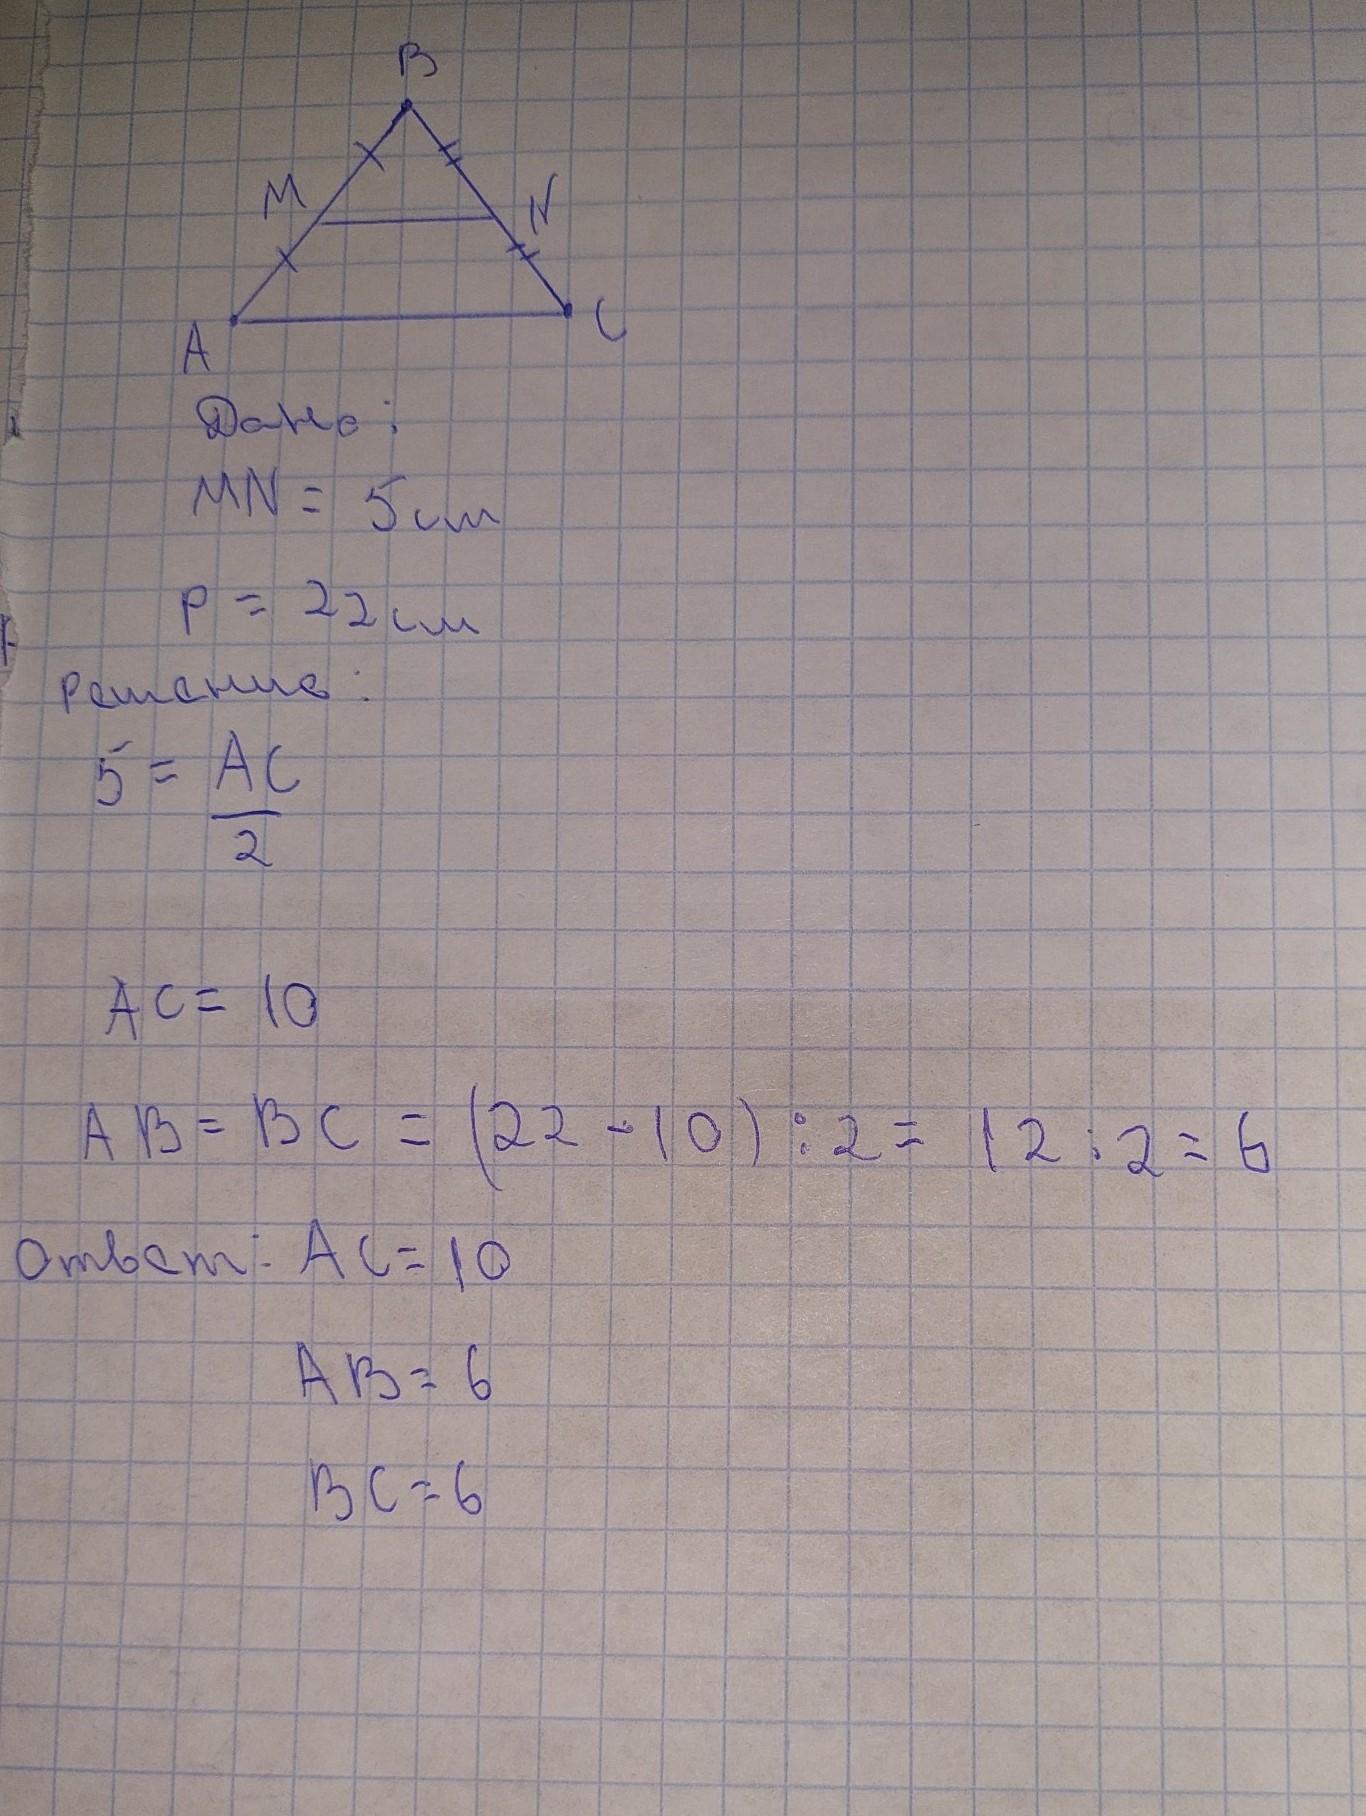 B
M N
A C
Дано:
MN = 5 см
P = 22 см
Решение:
5 = AC
2
AC = 10
AB = BC = (22 - 10) : 2 = 12 : 2 = 6
Ответ: AC = 10
AB = 6
BC = 6